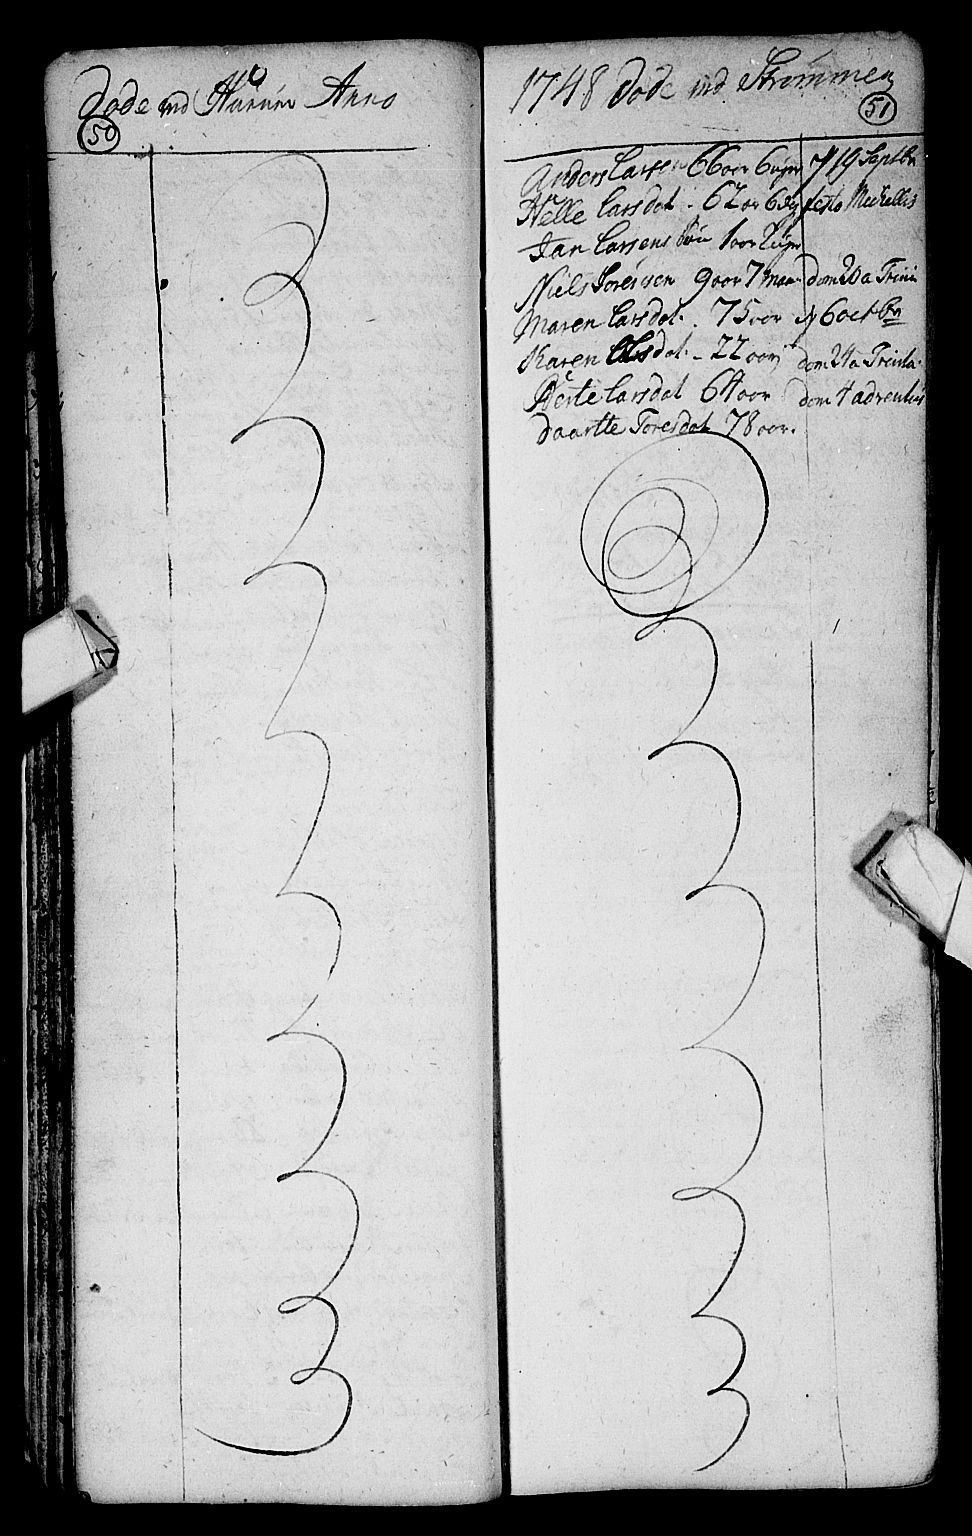 Døde ind Hurum Anno
50
1748 Døde ind Strømmen
51
Anders Larsen 66 oor 6 uger d 19 Septbr
Helle Larsdot. 62 or 6 festo Mickellis
Jan Larsens 1 oor 2 uger
Niels Joresen 9 oor 7 maan dom 20 a Trini
Maren Larsdot. 75 oor d 6 octbr
Karen Olsdot. 22 oor dom 24 a Trinita
Berte Larsdot 64 oor dom 4 adventus
daartte Toresdot 78 oor.